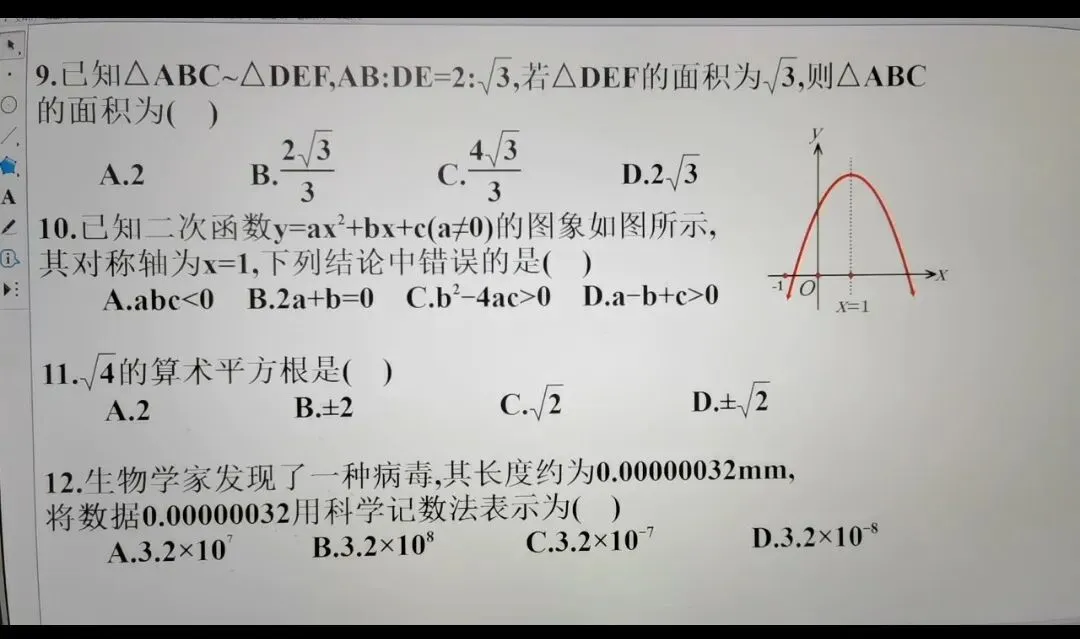 9.已知△ABC~△DEF,AB:DE=2:√3,若△DEF的面积为√3,则△ABC
的面积为(   )
A.2   B.2√3/3   C.4√3/3   D.2√3
10.已知二次函数y=ax²+bx+c(a≠0)的图象如图所示,
其对称轴为x=1,下列结论中错误的是(   )
A.abc<0   B.2a+b=0   C.b²−4ac>0   D.a−b+c>0
y
-1 O x
x=1
11.√4的算术平方根是(   )
A.2   B.±2   C.√2   D.±√2
12.生物学家发现了一种病毒,其长度约为0.00000032mm,
将数据0.00000032用科学记数法表示为(   )
A.3.2×10⁷   B.3.2×10⁸   C.3.2×10⁻⁷   D.3.2×10⁻⁸
A